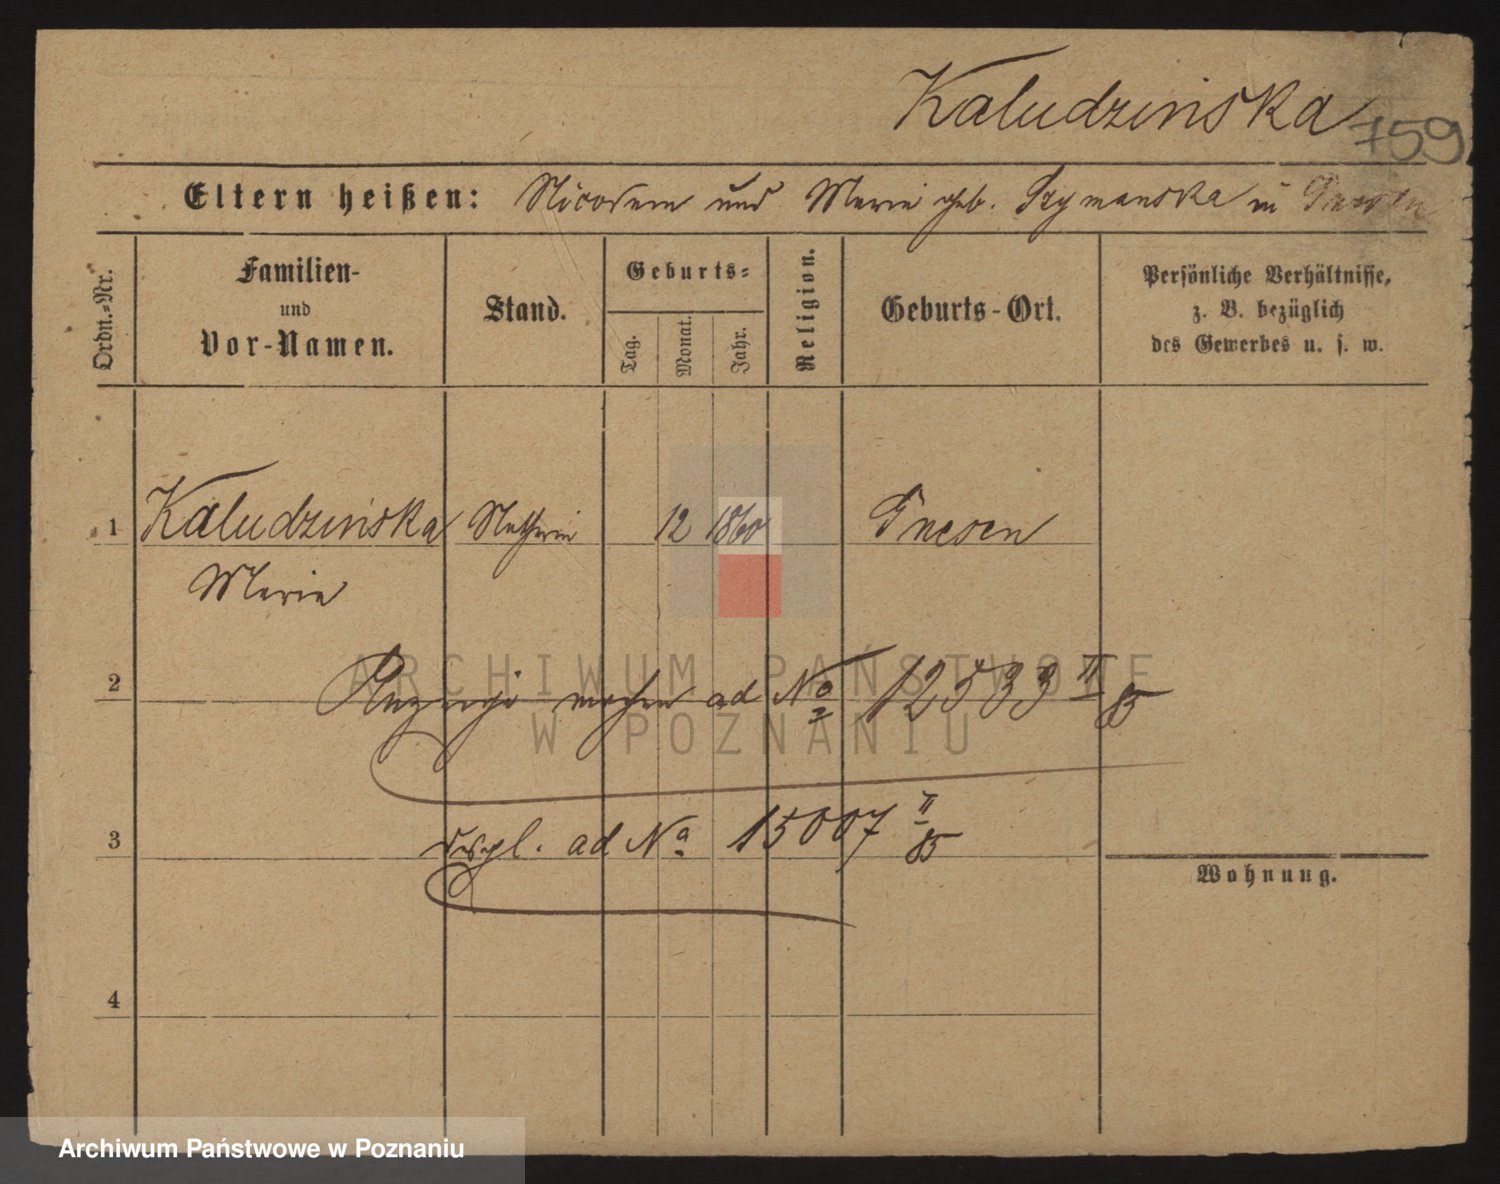 Kaludzińska
759
Eltern heißen: Nicodem und Marie geb. Szymanska in
Ordn.-Nr.
Familien-
und
Vor-Namen.
Stand.
Geburts-
Tag.
Monat.
Jahr.
Religion.
Geburts-Ort.
Persönliche Verhältnisse,
z. B. bezüglich
des Gewerbes u. s. w.
1 Kaludzińska 12 1860 Gnesen
Marie
2
ad No 12533 II/85
3
ad No 15007 II/85
Wohnung.
4
ARCHIWUM PAŃSTWOWE
W POZNANIU
Archiwum Państwowe w Poznaniu